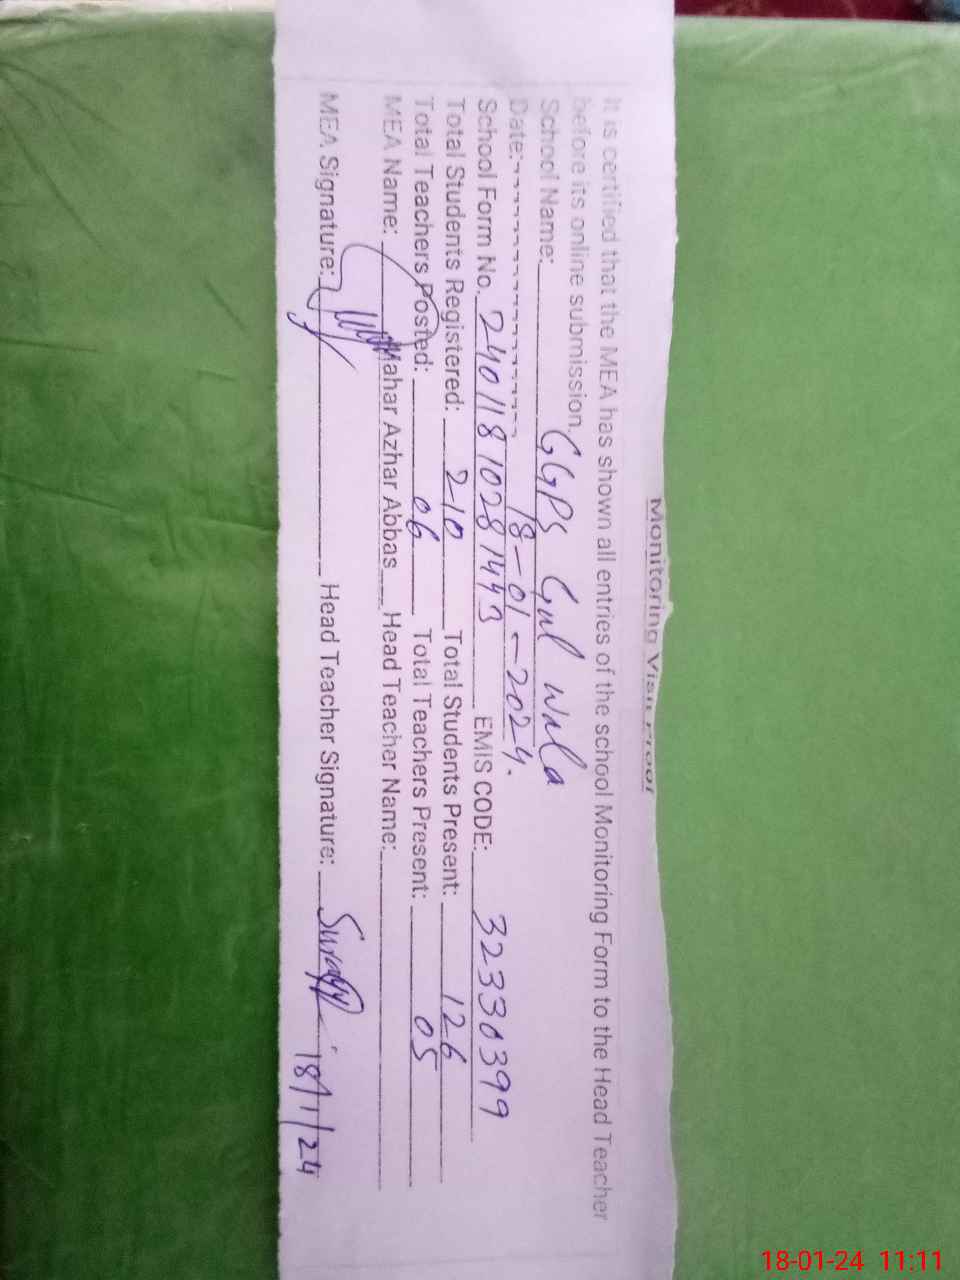 Monitoring Visit Proof
It is certified that the MEA has shown all entries of the school Monitoring Form to the Head Teacher
before its online submission.
School Name: GGPS Gul Wala
Date: 18-01-2024.
School Form No. 24011810281443 EMIS CODE: 32330399
Total Students Registered: 210 Total Students Present: 126
Total Teachers Posted: 06 Total Teachers Present: 05
MEA Name: Mahar Azhar Abbas Head Teacher Name:
MEA Signature: Head Teacher Signature: 18/1/24
18-01-24 11:11